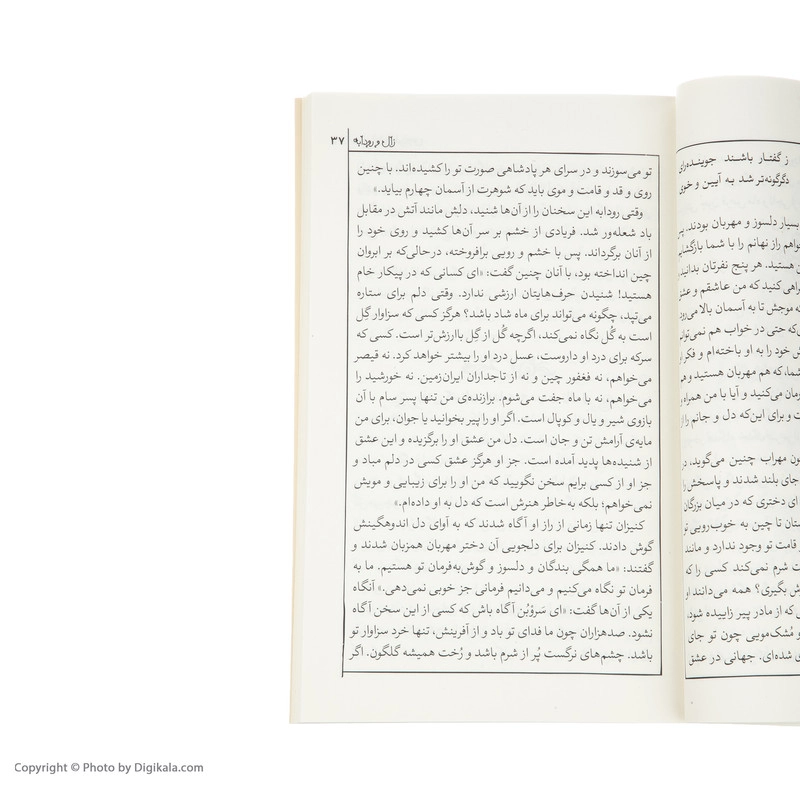 ز گفتار باشند جوینده‌رای
دگرگونه‌تر شد به آیین و خوی
بسیار دلسوز و مهربان بودند.
راز نهانم را با شما
هستید. هر پنج نفرتان بدانید
کنید که من عاشقم و
موجش تا به آسمان
که حتی در خواب هم
خود را به او باخته‌ام و فکر
که هم مهربان هستید و
می‌کنید و آیا با من
و برای این‌که دل و جانم را
مهراب چنین می‌گوید،
جای بلند شدند و پاسخش
ای دختری که در میان بزرگان
تا چین به خوب‌رویی
قامت تو وجود ندارد و مانند
شرم نمی‌کند کسی را که
بگیری؟ همه می‌دانند
که از مادر پیر زاییده شود،
و مُشک‌مویی چون تو جای
شده‌ای. جهانی در عشق
زال و رودابه ۳۷
تو می‌سوزند و در سرای هر پادشاهی صورت تو را کشیده‌اند. با چنین
روی و قد و قامت و موی باید که شوهرت از آسمان چهارم بیاید.»
وقتی رودابه این سخنان را از آن‌ها شنید، دلش مانند آتش در مقابل
باد شعله‌ور شد. فریادی از خشم بر سر آن‌ها کشید و روی خود را
از آنان برگرداند. پس با خشم و رویی برافروخته، درحالی‌که بر ابروان
چین انداخته بود، با آنان چنین گفت: «ای کسانی که در پیکار خام
هستید! شنیدن حرف‌هایتان ارزشی ندارد. وقتی دلم برای ستاره
می‌تپد، چگونه می‌تواند برای ماه شاد باشد؟ هرگز کسی که سزاوار گِل
است به گُل نگاه نمی‌کند، اگرچه گُل از گِل باارزش‌تر است. کسی که
سرکه برای درد او داروست، عسل درد او را بیشتر خواهد کرد. نه قیصر
می‌خواهم، نه فغفور چین و نه از تاجداران ایران‌زمین. نه خورشید را
می‌خواهم، نه با ماه جفت می‌شوم. برازنده‌ی من تنها پسر سام با آن
بازوی شیر و یال و کوپال است. اگر او را پیر بخوانید یا جوان، برای من
مایه‌ی آرامش تن و جان است. دل من عشق او را برگزیده و این عشق
از شنیده‌ها پدید آمده است. جز او هرگز عشق کسی در دلم مباد و
جز او از کسی برایم سخن نگویید که من او را برای زیبایی و مویش
نمی‌خواهم؛ بلکه به‌خاطر هنرش است که دل به او داده‌ام.»
کنیزان تنها زمانی از راز او آگاه شدند که به آوای دل اندوهگینش
گوش دادند. کنیزان برای دلجویی آن دختر مهربان همزبان شدند و
گفتند: «ما همگی بندگان و دلسوز و گوش‌به‌فرمان تو هستیم. ما به
فرمان تو نگاه می‌کنیم و می‌دانیم فرمانی جز خوبی نمی‌دهی.» آنگاه
یکی از آن‌ها گفت: «ای سَروْبُن آگاه باش که کسی از این سخن آگاه
نشود. صدهزاران چون ما فدای تو باد و از آفرینش، تنها خرد سزاوار تو
باشد. چشم‌های نرگست پُر از شرم باشد و رُخت همیشه گلگون. اگر
Copyright © Photo by Digikala.com